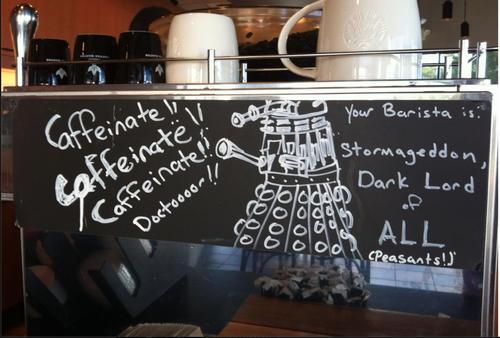 Caffeinate!!
Caffeinate!!
Caffeinate!!
Doctoooor!!
Your Barista is:
Stormageddon,
Dark Lord
of
ALL
(Peasants!)